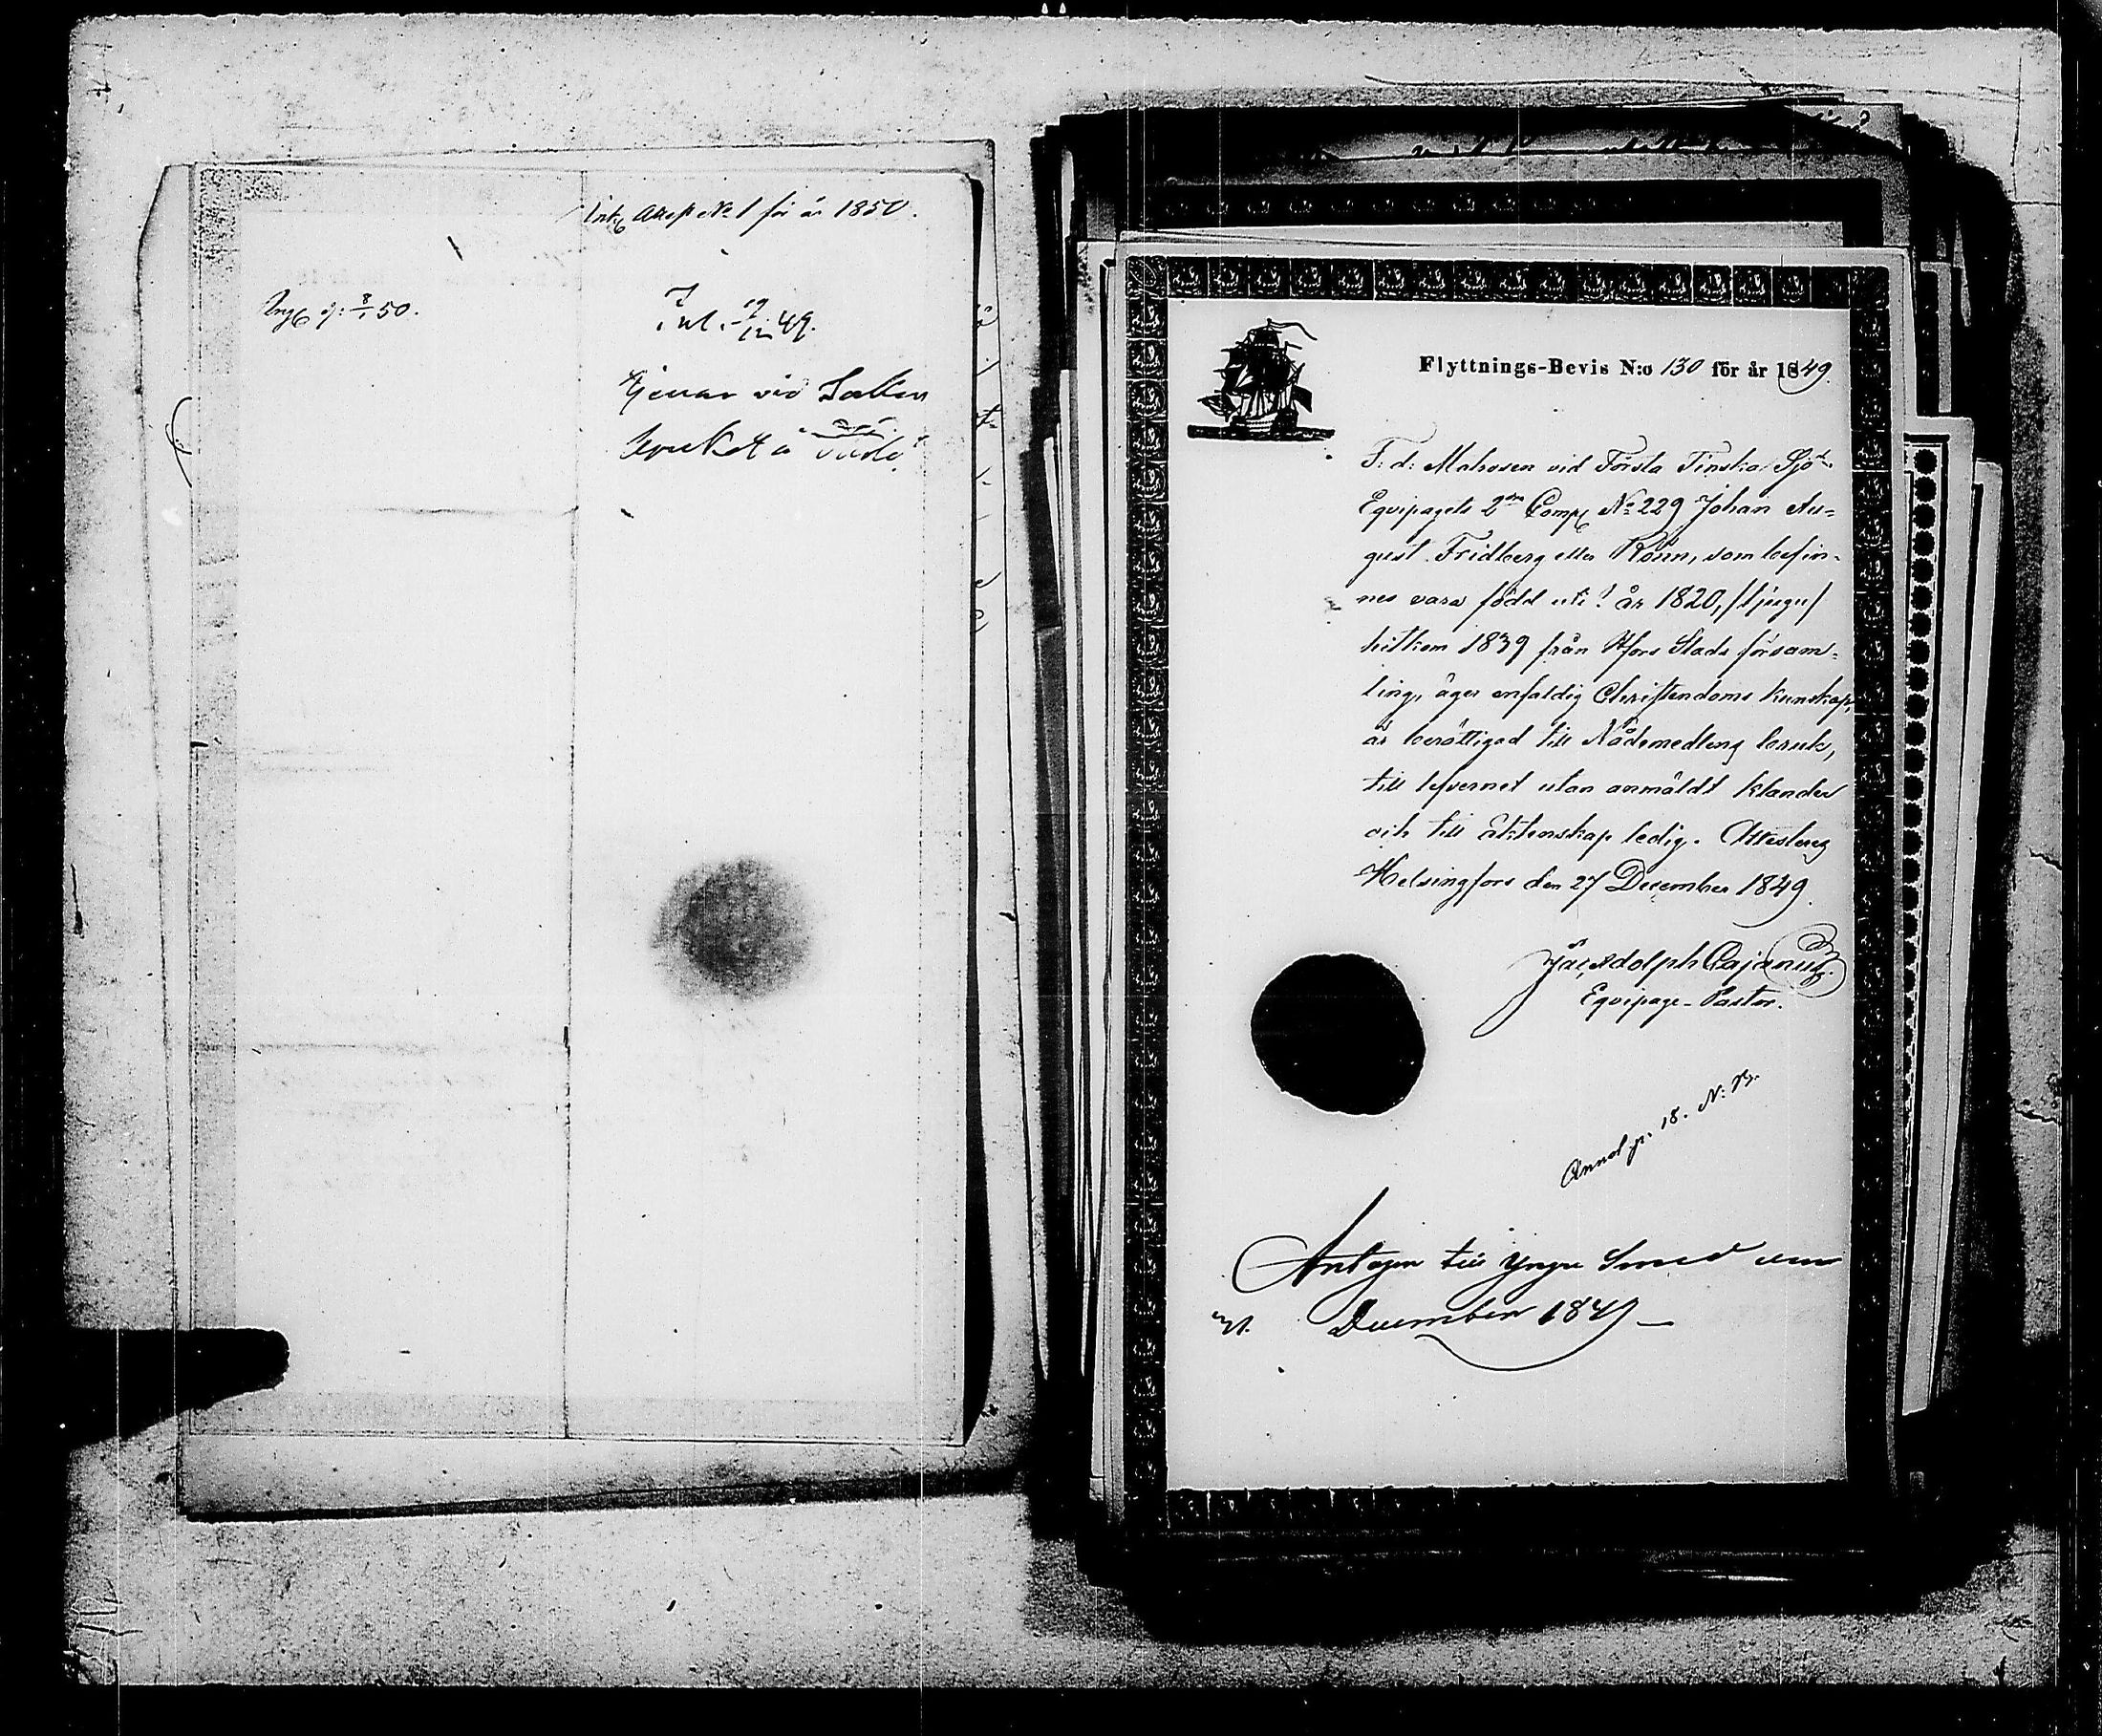 Ink. Attest No 1 för år 1850.
8/1 50.
Int. 49.
tjenar vid
bruket å
Flyttnings-Bevis N:o 130 för år 1849.
F: d: Matrosen vid Första Finska Sjö-
Equipagets 2dra Comp. No 229 Johan Au-
gust Fridberg eller Rönn, som befin-
nes vara född uti? år 1820, /tjugu/
hitkom 1839 från Hfors Stads försam-
ling, äger enfaldig Christendoms kunskap,
är berättigad till Nådemedlens bruk,
till lefvernet utan anmäldt klander
och till äktenskap ledig. Attesterar
Helsingfors den 27 December 1849.
Jac. Adolph Cajanus.
Equipage-Pastor.
Annot. p. 18. N:
Antagen till yngre Smed
December 1849